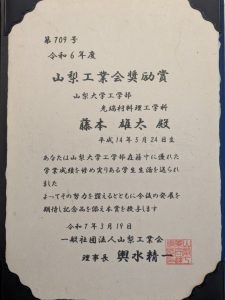 第709号
令和6年度
山梨工業会奨励賞
山梨大学工学部
先端材料理工学科
藤本 雄太 殿
平成14年5月24日生
あなたは山梨大学工学部在籍中に優れた
学業成績を修め実りある学生生活を送られ
ました
よってその努力を讃えるとともに今後の発展を
期待し記念品を添え本賞を授与します
令和7年3月19日
一般社団法人山梨工業会
理事長 輿水精一